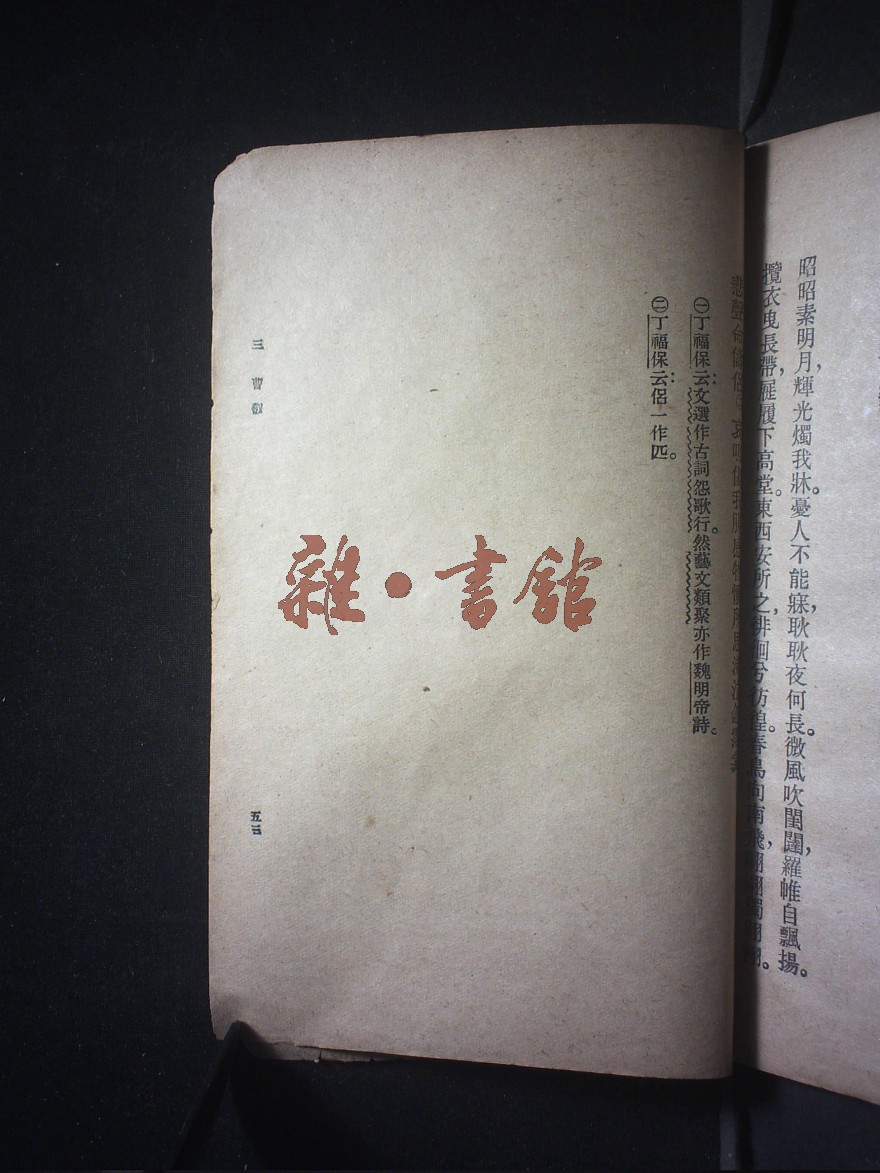 昭昭素明月，輝光燭我牀。憂人不能寐，耿耿夜何長。微風吹閨闥，羅帷自飄揚。
攬衣曳長帶，屣履下高堂。東西安所之，徘徊兮彷徨。春鳥向南飛，翩翩獨翱翔。
悲聲命儔侶㊁哀鳴傷我腸感物懷所思
㊀丁福保云：文選作古詞怨歌行。然藝文類聚亦作魏明帝詩。
㊁丁福保云：侶一作匹。
三 曹叡
五三
雜·書館